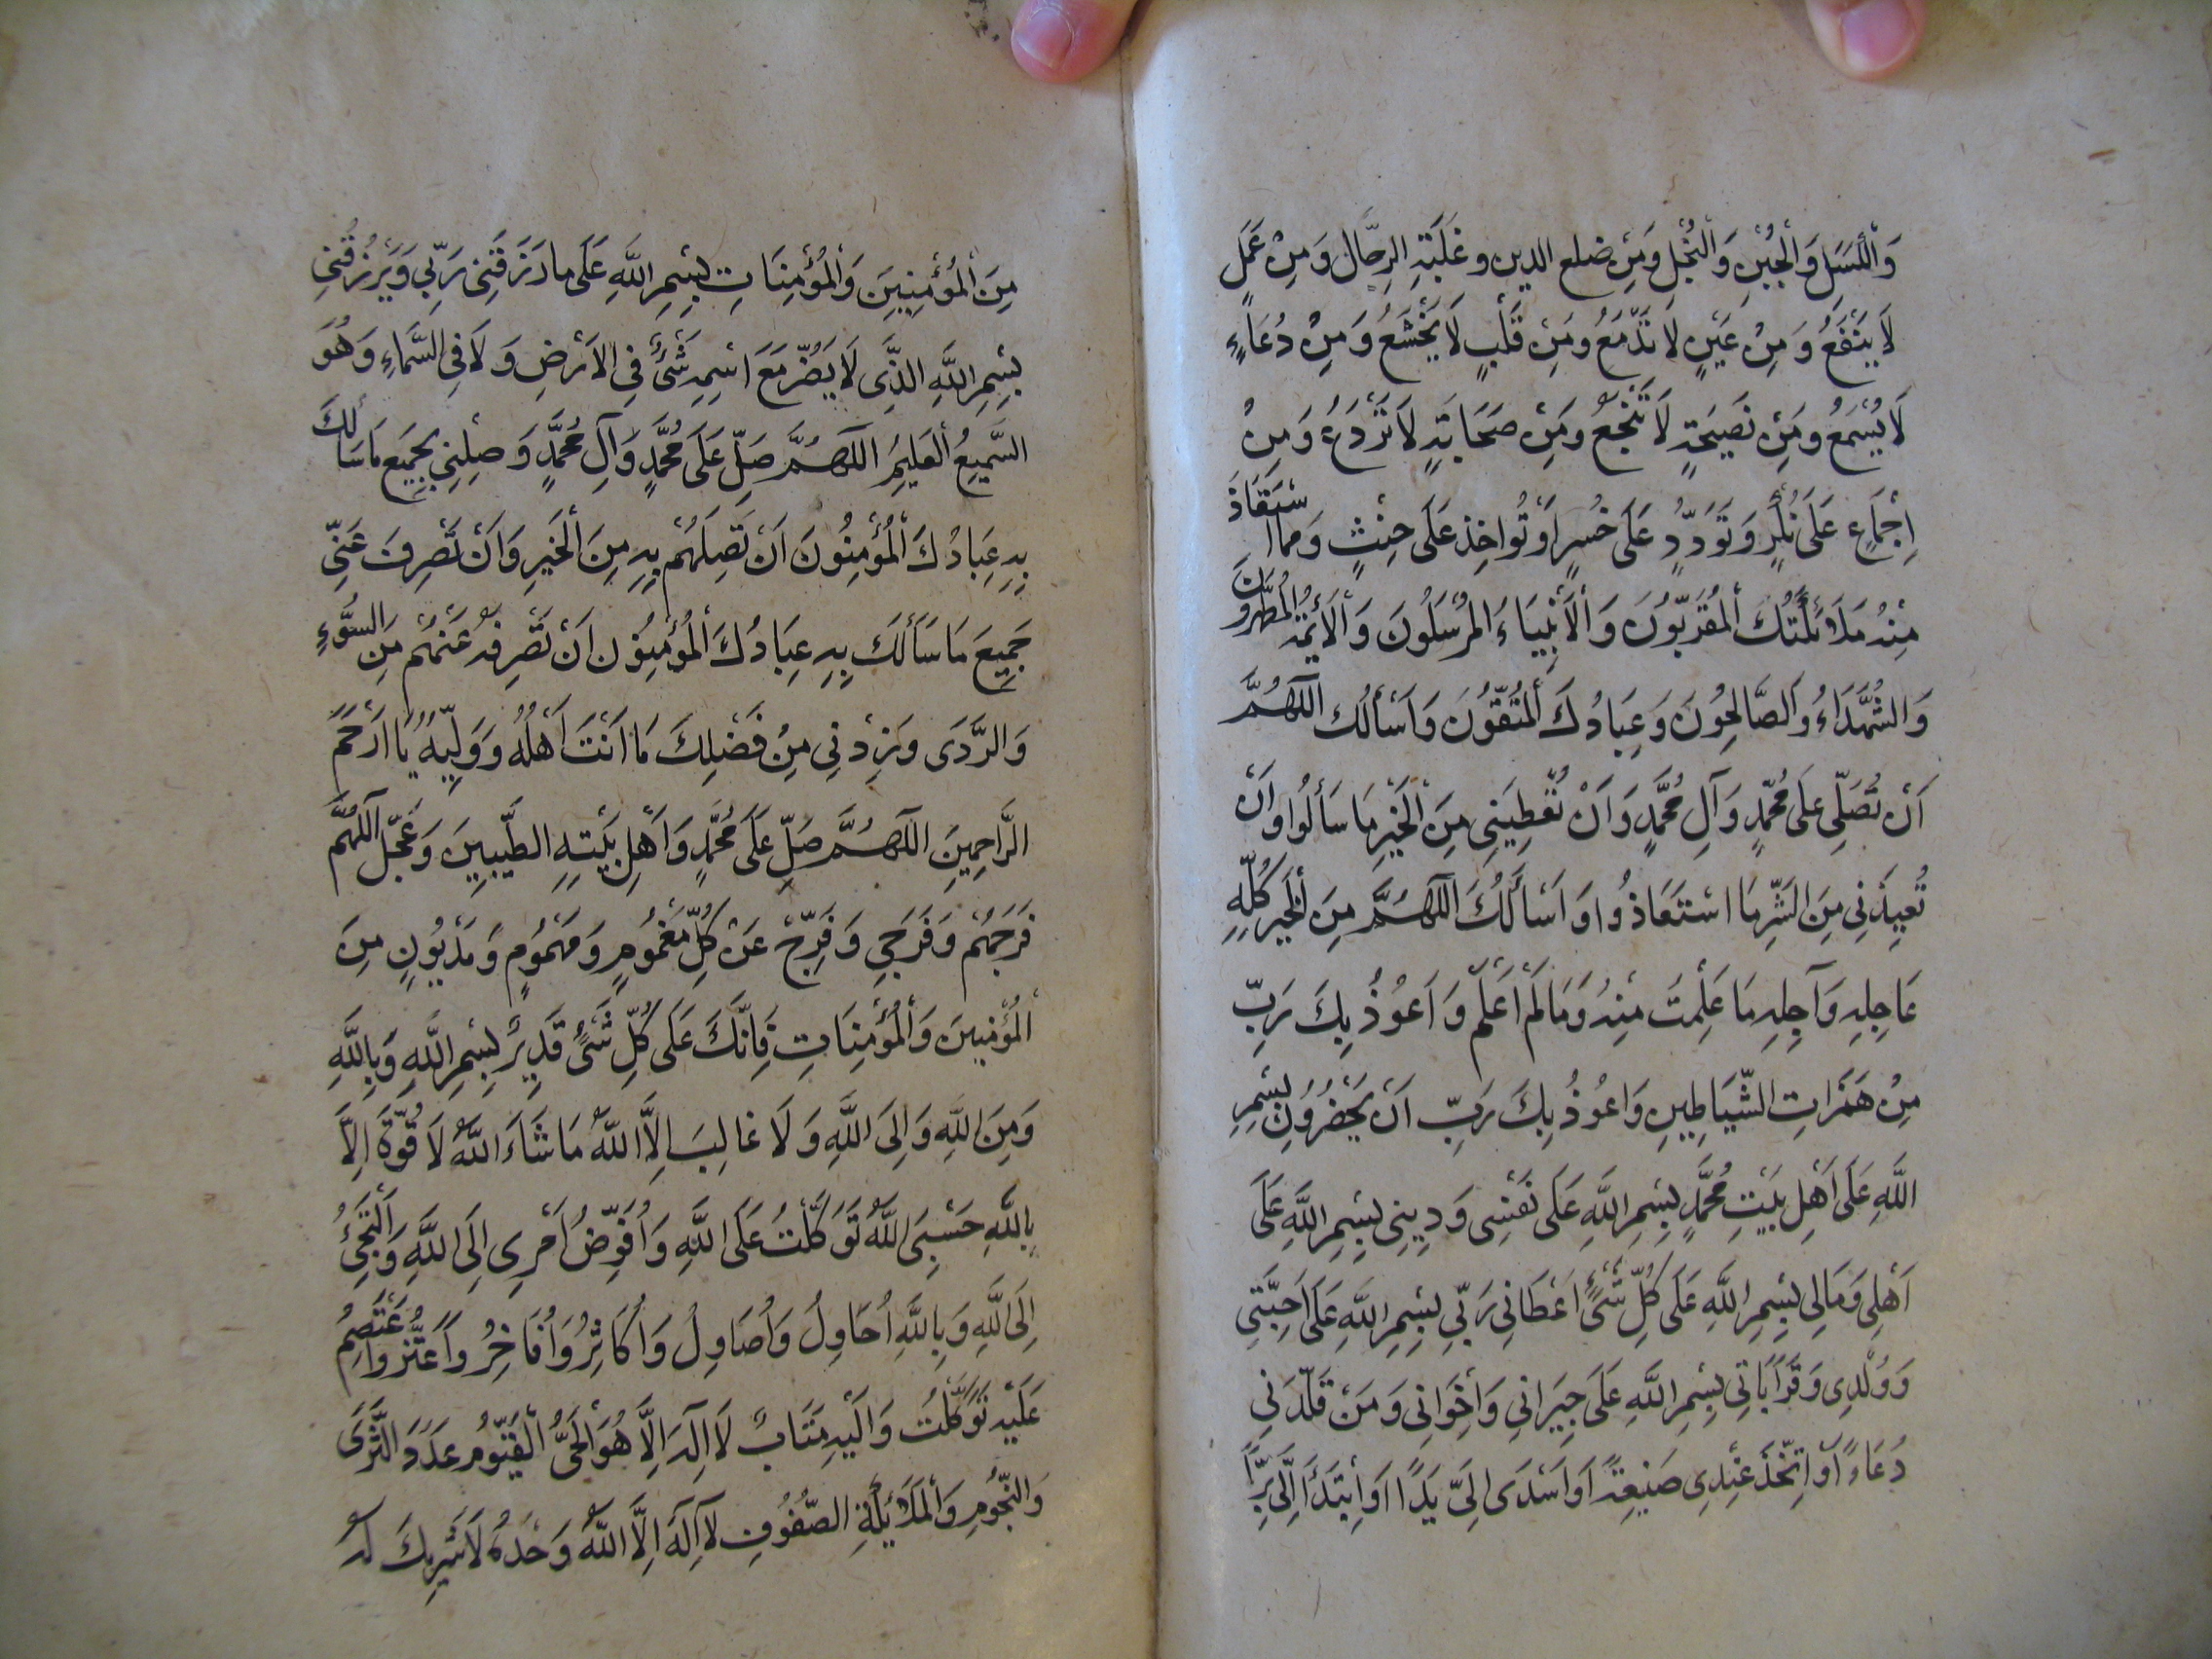 وَالْكَسَلِ وَالْجُبْنِ وَالْبُخْلِ وَمِنْ ضلع الدين وغَلَبَةِ الرِّجَال وَمِنْ عَمَلٍ
لَا يَنْفَعُ وَمِنْ عَيْنٍ لَا تَدْمَعُ وَمِنْ قَلْبٍ لَا يَخْشَعُ وَمِنْ دُعَاءٍ
لَا يُسْمَعُ وَمِنْ نَصِيحَةٍ لَا تَنْجَعُ وَمِنْ صَحَابَةٍ لَا تَرْدَعُ وَمِنْ
اِجْمَاعٍ عَلَى نُكْرٍ وَتَوَدُّدٍ عَلَى خُسْرٍ اَوْ تُواخِذ عَلَى حِنْثٍ وَمما استَعَاذَ
مِنْهُ مَلَائِكَتُكَ الْمُقَرَّبُونَ وَالْاَنْبِيَاءَ الْمُرْسَلُونَ وَالْاَئِمَّة الْمُطَهَّرونَ
وَالشُّهَدَاءُ وَالصَّالِحُونَ وَعِبَادُكَ الْمُتَّقُونَ وَاَسْاَلُكَ اَللّهُمَّ
اَنْ تُصَلِّىَ عَلَى مُحَمَّدٍ وَآلِ مُحَمَّدٍ وَاَنْ تُعْطِيَنِي مِنَ الْخَيْرِ مَا سَأَلُوا وَاَنْ
تُعِيذَنِي مِنَ الشَّرِّ مَا اسْتَعَاذُوا وَ اَسْأَلُكَ اللّهُمَّ مِنَ الْخَيْرِ كُلِّهِ
عَاجِلِهِ وَآجِلِهِ مَا عَلِمْتَ مِنْهُ وَمَا لَمْ اَعْلَمْ وَ اَعُوذُ بِكَ رَبِّ
مِنْ هَمَزَاتِ الشَّيَاطِينِ وَاعُوذُ بِكَ رَبِّ اَنْ يَحْضُرُونِ بِسْمِ
اللَّهِ عَلَى اَهْلِ بَيْتِ مُحَمَّدٍ بِسْمِ اللَّهِ عَلَى نَفْسِى وَدِينِى بِسْمِ اللَّهِ عَلَى
اَهْلِى وَمَالِى بِسْمِ اللَّهِ عَلَى كُلِّ شَىْءٍ اَعْطَانِي رَبِّي بِسْمِ اللَّهِ عَلَى اَحِبَّتِي
وَوُلْدِى وَقَرَابَاتِي بِسْمِ اللَّهِ عَلَى جِيرَانِي وَاِخْوَانِي وَمَنْ قَلَّدَنِي
دُعَاءً اَوِ اتَّخَذَ عِنْدِى صَنِيعَةً اَوْ اَسْدَى اِلَىَّ يَدًا اَوِ ابْتَدَأَ اِلَىَّ بِرًّا
مِنَ الْمُؤْمِنِينَ وَالْمُؤْمِنَاتِ بِسْمِ اللَّهِ عَلَى ما رَزَقَنِى رَبِّي وَيَرْزُقُنِي
بِسْمِ اللَّهِ الَّذِى لَا يَضُرُّ مَعَ اسْمِهِ شَىْءٌ فِى الْاَرْضِ وَلَا فِى السَّمَاءِ وَهُوَ
السَّمِيعُ الْعَلِيمُ اللّهُمَّ صَلِّ عَلَى مُحَمَّدٍ وَآلِ مُحَمَّدٍ وَصِلْنِي بِجَمِيعِ مَا سَأَلَكَ
بِهِ عِبَادُكَ الْمُؤْمِنُونَ اَنْ تَصِلَهُمْ بِهِ مِنَ الْخَيرِ وَاَنْ تَصْرِفَ عَنِّى
جَمِيعَ مَا سَأَلَكَ بِهِ عِبَادُكَ الْمُؤْمِنُون اَنْ تَصْرِفَهُ عَنْهُمْ مِنَ السُّوءِ
وَالرَّدَى وَزِدْنِي مِنْ فَضْلِكَ مَا اَنْتَ اَهْلُهُ وَوَلِيُّهُ يَا اَرْحَمَ
الرَّاحِمِينَ اللّهُمَّ صَلِّ عَلَى مُحَمَّدٍ وَاَهْلِ بَيْتِهِ الطَّيِّبِينَ وَعَجِّلْ اَللّهُمَّ
فَرَجَهُمْ وَفَرَجِي وَفَرِّجْ عَنْ كُلِّ مَغْمُومٍ وَمَهْمُومٍ وَمَدْيُونٍ مِنَ
الْمُؤْمِنِينَ وَالْمُؤْمِنَاتِ فَاِنَّكَ عَلَى كُلِّ شَىْءٍ قَدِيرٌ بِسْمِ اللَّهِ وَبِاللَّهِ
وَمِنَ اللَّهِ وَاِلَى اللَّهِ وَلَا غَالِبَ اِلَّا اللَّهُ مَا شَاءَ اللَّهُ لَا قُوَّةَ اِلَّا
بِاللَّهِ حَسْبِىَ اللَّهُ تَوَكَّلْتُ عَلَى اللَّهِ وَاُفَوِّضُ اَمْرِي اِلَى اللَّهِ وَاَلْتَجِئُ
اِلَى اللَّهِ وَبِاللَّهِ اُحَاوِلُ وَاُصَاوِلُ وَاُكَاثِرُ وَاُفَاخِرُ وَاَعْتَزُّ وَاعْتَصِمُ
عَلَيْهِ تَوَكَّلْتُ وَاِلَيْهِ مَتَابٌ لَا اِلَهَ اِلَّا هُوَ الْحَىُّ الْقَيُّومُ عَدَدَ الثَّرَى
وَالنُّجُومِ وَالْمَلَائِكَةِ الصُّفُوفِ لَا اِلَهَ اِلَّا اللَّهُ وَحْدَهُ لَا شَرِيكَ لَهُ